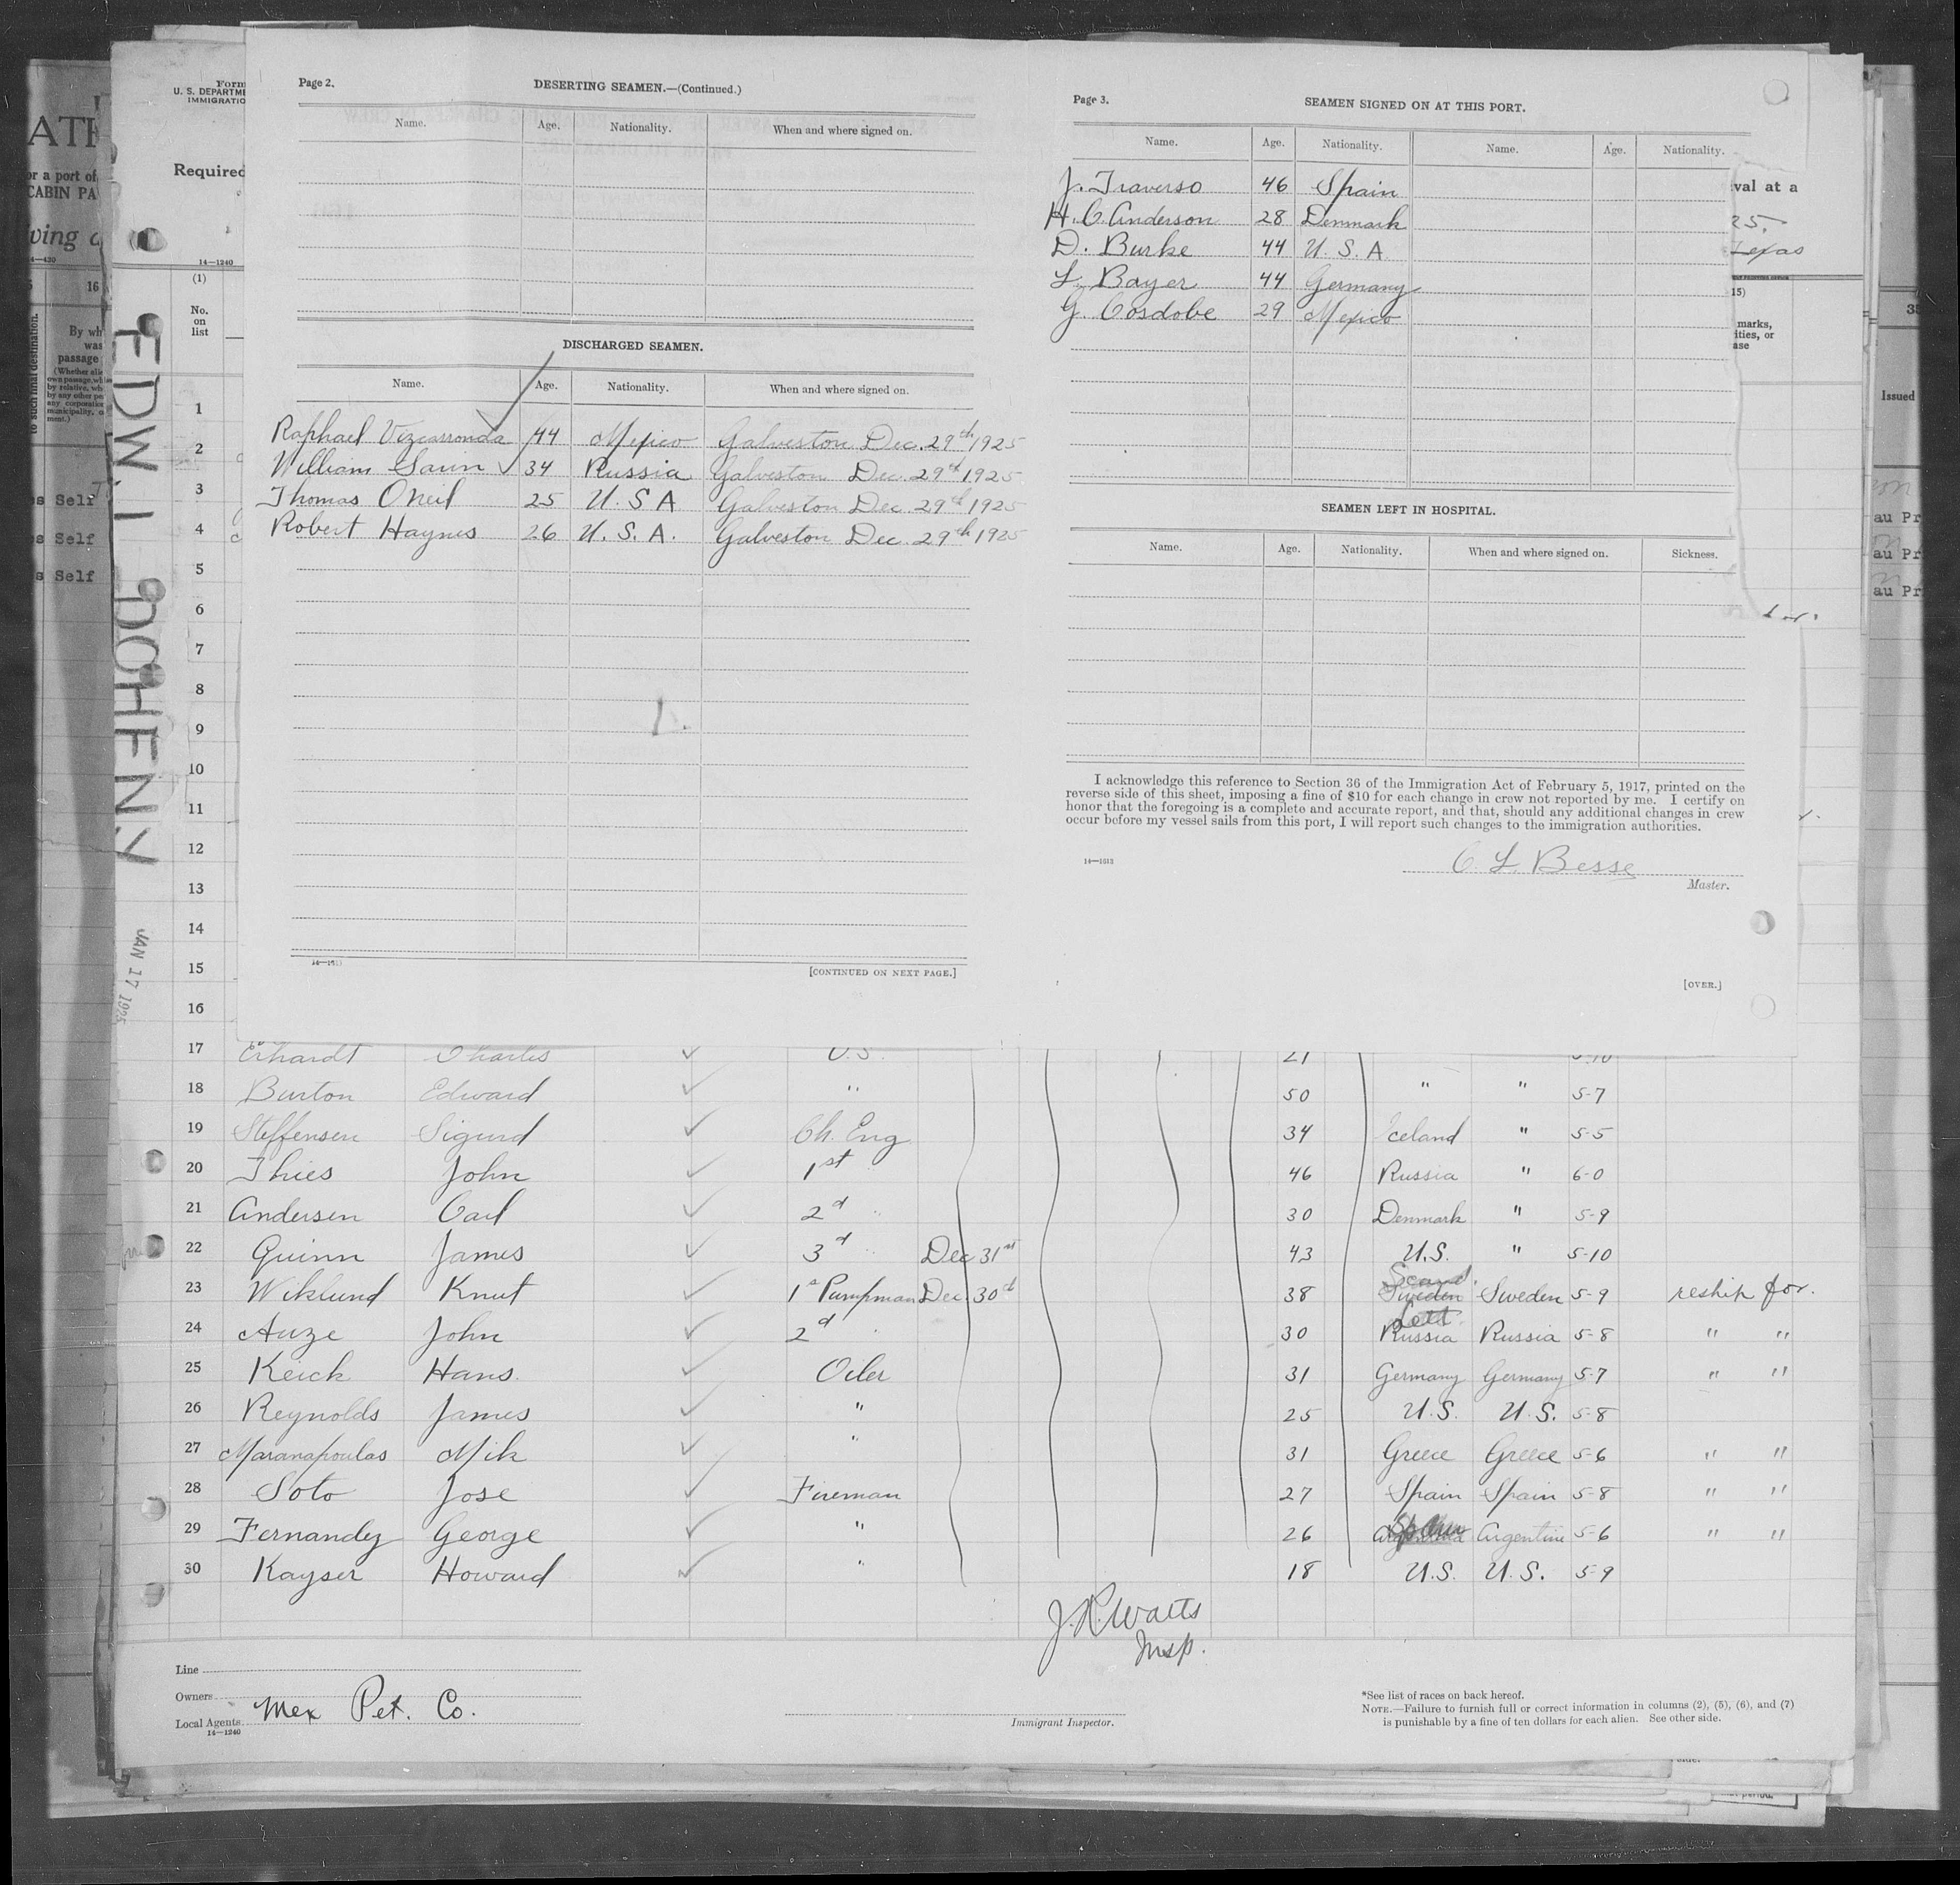 Page 2.
DESERTING SEAMEN.—(Continued.)
Name. Age. Nationality. When and where signed on.
DISCHARGED SEAMEN.
Name. Age. Nationality. When and where signed on.
Raphael Vizcarronda 44 Mexico Galveston Dec. 29th 1925
William Sarin 34 Russia Galveston Dec. 29th 1925
Thomas ONeil 25 U.S A Galveston Dec. 29th 1925
Robert Haynes 26 U.S.A. Galveston Dec. 29th 1925
[CONTINUED ON NEXT PAGE.]
Page 3.
SEAMEN SIGNED ON AT THIS PORT.
Name. Age. Nationality. Name. Age. Nationality.
J. Traverso 46 Spain
H. C. Anderson 28 Denmark
D. Burke 44 U.S.A
L. Bayer 44 Germany
G. Cosdobe 29 Mexico
SEAMEN LEFT IN HOSPITAL.
Name. Age. Nationality. When and where signed on. Sickness.
I acknowledge this reference to Section 36 of the Immigration Act of February 5, 1917, printed on the
reverse side of this sheet, imposing a fine of $10 for each change in crew not reported by me. I certify on
honor that the foregoing is a complete and accurate report, and that, should any additional changes in crew
occur before my vessel sails from this port, I will report such changes to the immigration authorities.
14—1613
C. L. Besse
Master.
[OVER.]
Form
U. S. DEPARTME
IMMIGRATIO
Required
14—1240
(1)
No.
on
list
val at a
25.
Texas
15)
marks,
ities, or
ase
EDW. L DOHENY
JAN 17 1925
1
2
3
4
5
6
7
8
9
10
11
12
13
14
15
16
17 Erhardt Charles U.S. 21 5-10
18 Burton Edward " 50 " " 5-7
19 Steffensen Sigurd Ch. Eng 34 Iceland " 5-5
20 Thies John 1st " 46 Russia " 6-0
21 Andersen Carl 2d " 30 Denmark " 5-9
22 Quinn James 3d " Dec 31st 43 U.S. " 5-10
23 Wiklund Knut 1st Pumpman Dec. 30th 38 Scand. Sweden Sweden 5-9 reship for.
24 Auze John 2d " 30 Lett Russia Russia 5-8 " "
25 Keick Hans. Oiler 31 Germany Germany 5-7 " "
26 Reynolds James " 25 U.S. U.S. 5-8
27 Maranapoulas Mik " 31 Greece Greece 5-6 " "
28 Soto Jose Fireman 27 Spain Spain 5-8 " "
29 Fernandez George " 26 Span Argentine 5-6 " "
30 Kayser Howard " 18 U.S. U.S. 5-9
J.R. Watts
Insp.
Line
Owners
Mex Pet. Co.
Local Agents
14—1240
Immigrant Inspector.
*See list of races on back hereof.
NOTE.—Failure to furnish full or correct information in columns (2), (5), (6), and (7)
is punishable by a fine of ten dollars for each alien. See other side.
ATI
or a port of
CABIN PA
ving a
16
By wh
was
passage
to such final destination.
s Self
s Self
s Self
Issued
au Pr
au Pr
au Pr